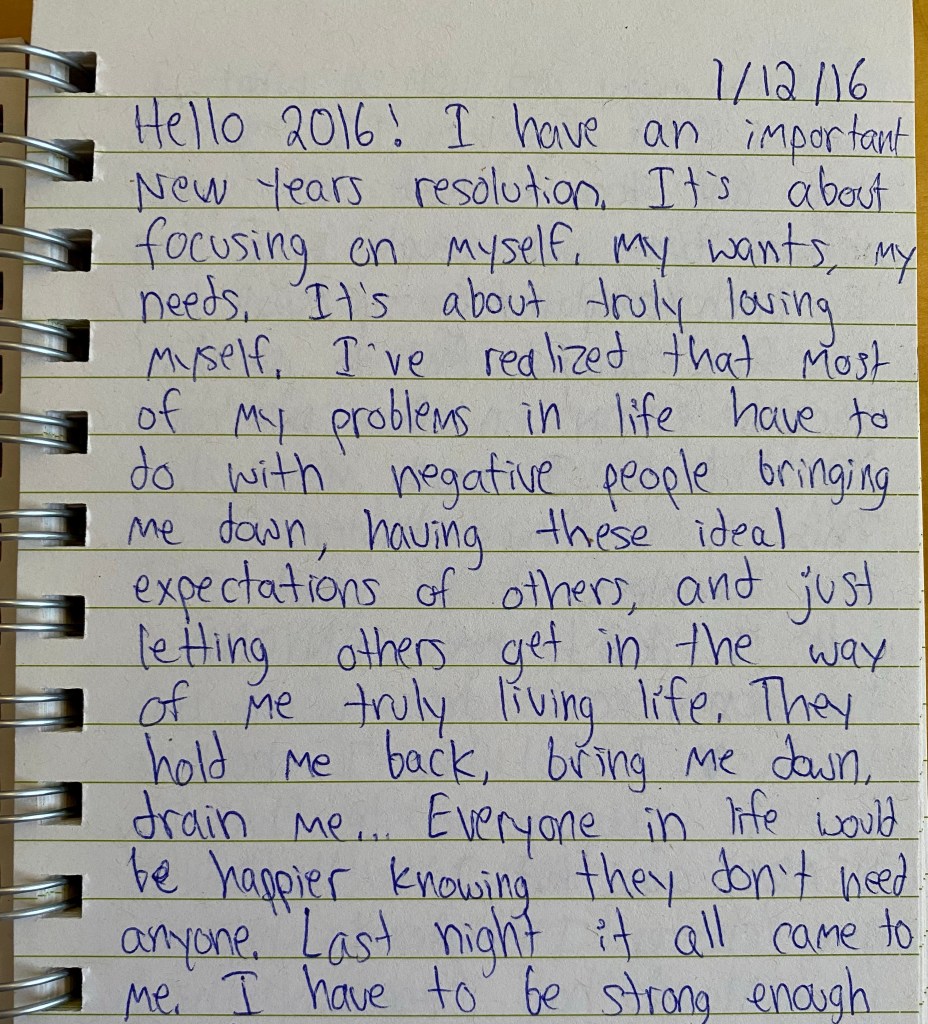 1/12/16
Hello 2016! I have an important
New Years resolution. It's about
focusing on myself. My wants, my
needs. It's about truly loving
myself. I've realized that most
of my problems in life have to
do with negative people bringing
me down, having these ideal
expectations of others, and just
letting others get in the way
of me truly living life. They
hold me back, bring me down,
drain me... Everyone in life would
be happier knowing they don't need
anyone. Last night it all came to
me. I have to be strong enough